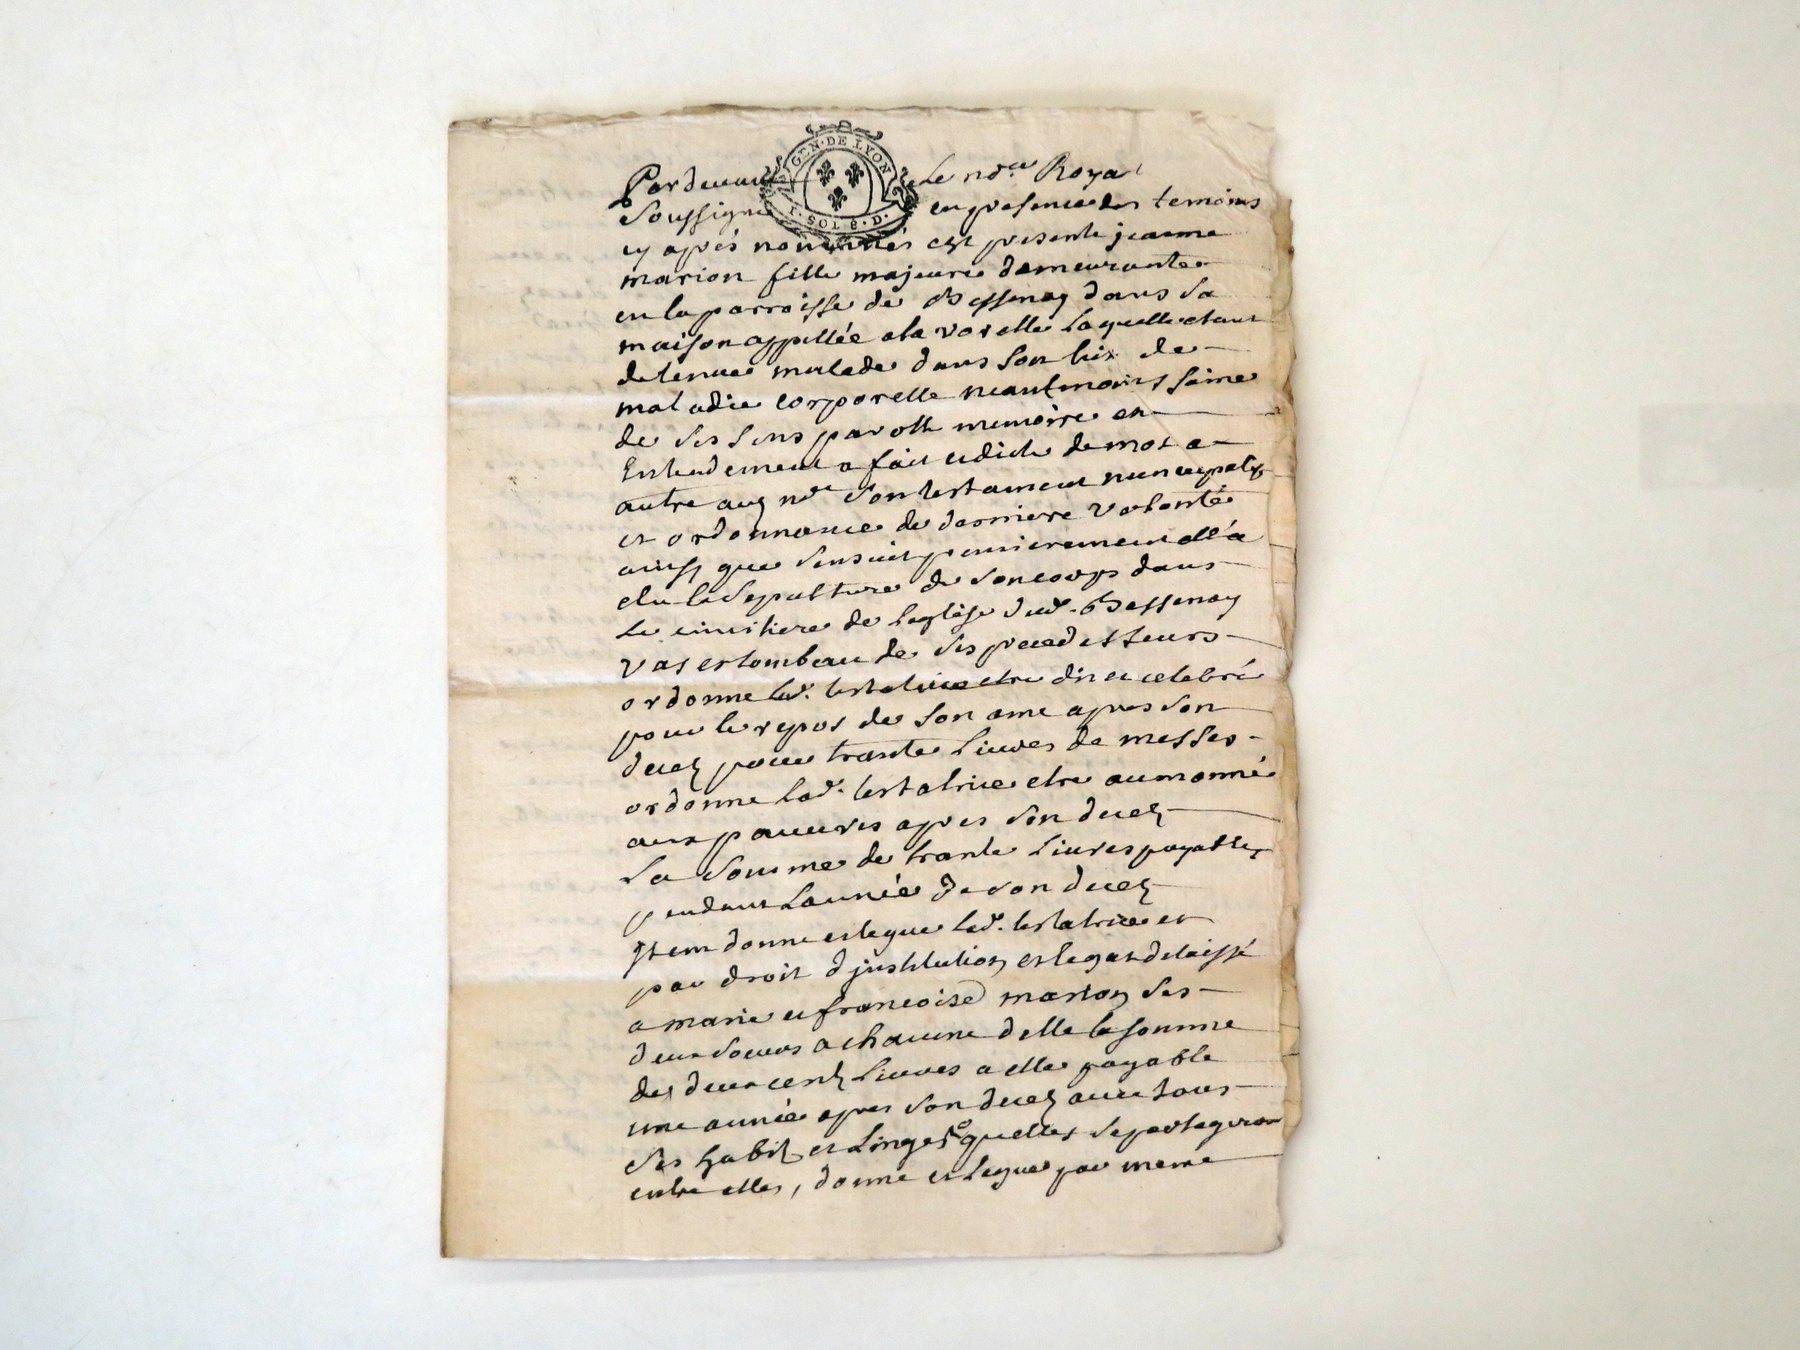 GEN · DE LYON
I · SOL 8 · D ·
Pardevant Le nore Royal
Soussigné en presence des temoins
cy aprés nommés est presente jeanne
marion fille majeure demeurante
en la parroisse de Bessenay dans sa
maison appellée a la laquelle etant
detenue malade dans son lict de
maladie corporelle neantmoins saine
de ses sens parolle memoire et
Entendement a fait et dicté de mot a
autre aud nre son testament nuncupatif
et ordonnance de derniere volonté
ainsy que sensuit premierement ella a
elu la sepulture de son corps dans
le cimitiere de leglise dud. Bessenay
vas et tombeau de ses predesseurs
ordonne lad. testatrice etre dit et celebré
pour le repos de son ame apres son
decez pour trante livres de messes
ordonne lad. testatrice etre aumonné
aux pauvres apres son decez
La somme de trante livres payables
pendant Lannée de son decez
Item donne et legue lad. testatrice et
par droit d'institution et legat delaissé
a marie et francoise marion ses
deux soeurs a chacune delle la somme
de deux cent livres a elle payable
une année apres son decez avec tous
ses habit et Linges quelles separtageront
entre elles, donne et legue par meme